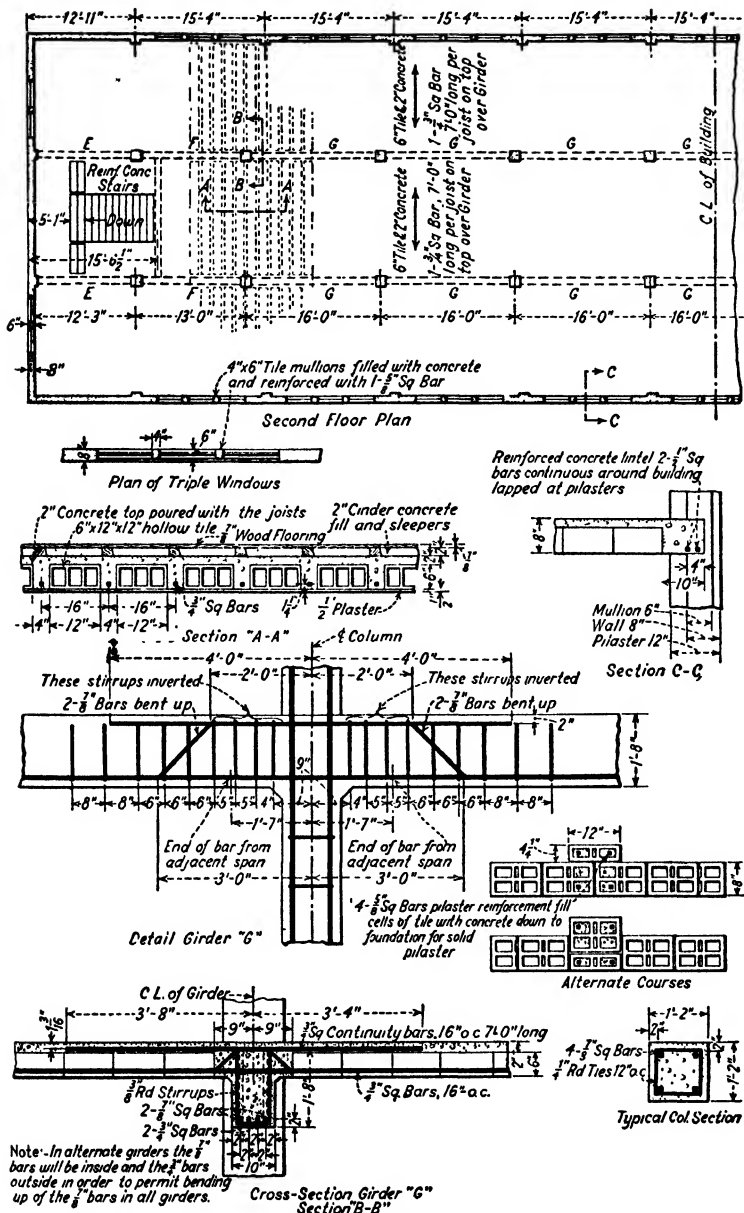 12'-11" 15'-4" 15'-4" 15'-4" 15'-4" 15'-4"
6" Tile & 2" Concrete
1-3/4" Sq Bar
7'-0" long per
joist on top
over Girder
C L of Building
E F G G G G
B
B
A A
Reinf Conc
Stairs
Down
5'-1"
15'-6 1/2"
6" Tile & 2" Concrete
1-3/4" Sq Bar, 7'-0"
long per joist on
top over Girder
E F G G G G
12'-3" 13'-0" 16'-0" 16'-0" 16'-0" 16'-0"
6"
8"
C
C
4"x6" Tile mullions filled with concrete
and reinforced with 1-5/8" Sq Bar
Second Floor Plan
8" 4" 6"
Plan of Triple Windows
Reinforced concrete lintel 2-1/2" Sq
bars continuous around building
lapped at pilasters
8"
4"
10"
Mullion 6"
Wall 8"
Pilaster 12"
Section C-C
2" Concrete top poured with the joists
6"x12"x12" hollow tile
7/8" Wood Flooring
2" Cinder concrete
fill and sleepers
7/8"
2" 2" 6"
1/2"
16" 16"
4" 12" 4" 12"
3/4" Sq Bars
1 1/4"
1/2" Plaster
Section "A-A"
℄ Column
4'-0" 4'-0"
2'-0" 2'-0"
These stirrups inverted
2-7/8" Bars bent up
These stirrups inverted
2-7/8" Bars bent up
2"
1'-8"
9"
8" 8" 6" 6" 6" 5" 5" 4" 4" 5" 5" 6" 6" 6" 8" 8"
1'-7" 1'-7"
End of bar from
adjacent span
End of bar from
adjacent span
3'-0" 3'-0"
Detail Girder "G"
12"
4 1/4"
8"
4-5/8" Sq Bars pilaster reinforcement fill
cells of tile with concrete down to
foundation for solid
pilaster
Alternate Courses
C L. of Girder
3'-8" 3'-4"
9" 9"
Sq Continuity bars, 16" o.c 7'-0" long
1 3/16"
2"
6"
1'-8"
3/8" Rd Stirrups
2-7/8" Sq Bars
2-3/4" Sq Bars
3/4" Sq. Bars, 16" o.c.
2"
2" 2" 2"
2" 2"
10"
Note:-In alternate girders the 7/8"
bars will be inside and the 3/4" bars
outside in order to permit bending
up of the 7/8" bars in all girders.
Cross-Section Girder "G"
Section "B-B"
1'-2"
2"
2"
1'-2"
4-7/8" Sq Bars
1/4" Rd Ties 12" o.c
Typical Col Section